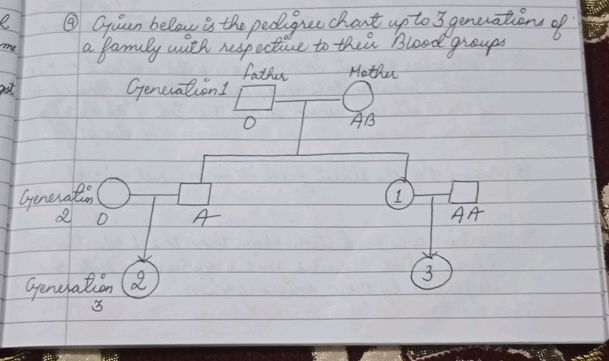 9 Given below is the pedigree chart up to 3 generations of
a family with respective to their Blood groups
Father Mother
Generation 1
O AB
Generation
2
O A 1 AA
Generation
3
2 3